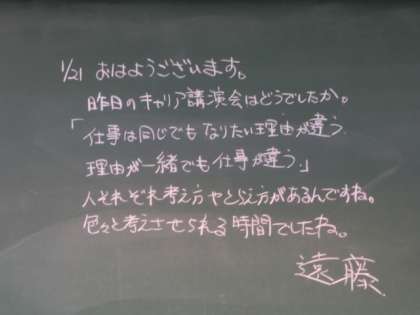 1/21 おはようございます。
昨日のキャリア講演会はどうでしたか。
「仕事は同じでもなりたい理由が違う
理由が一緒でも仕事が違う。」
人それぞれ考え方やとらえ方があるんですね。
色々と考えさせられる時間でしたね。
遠藤